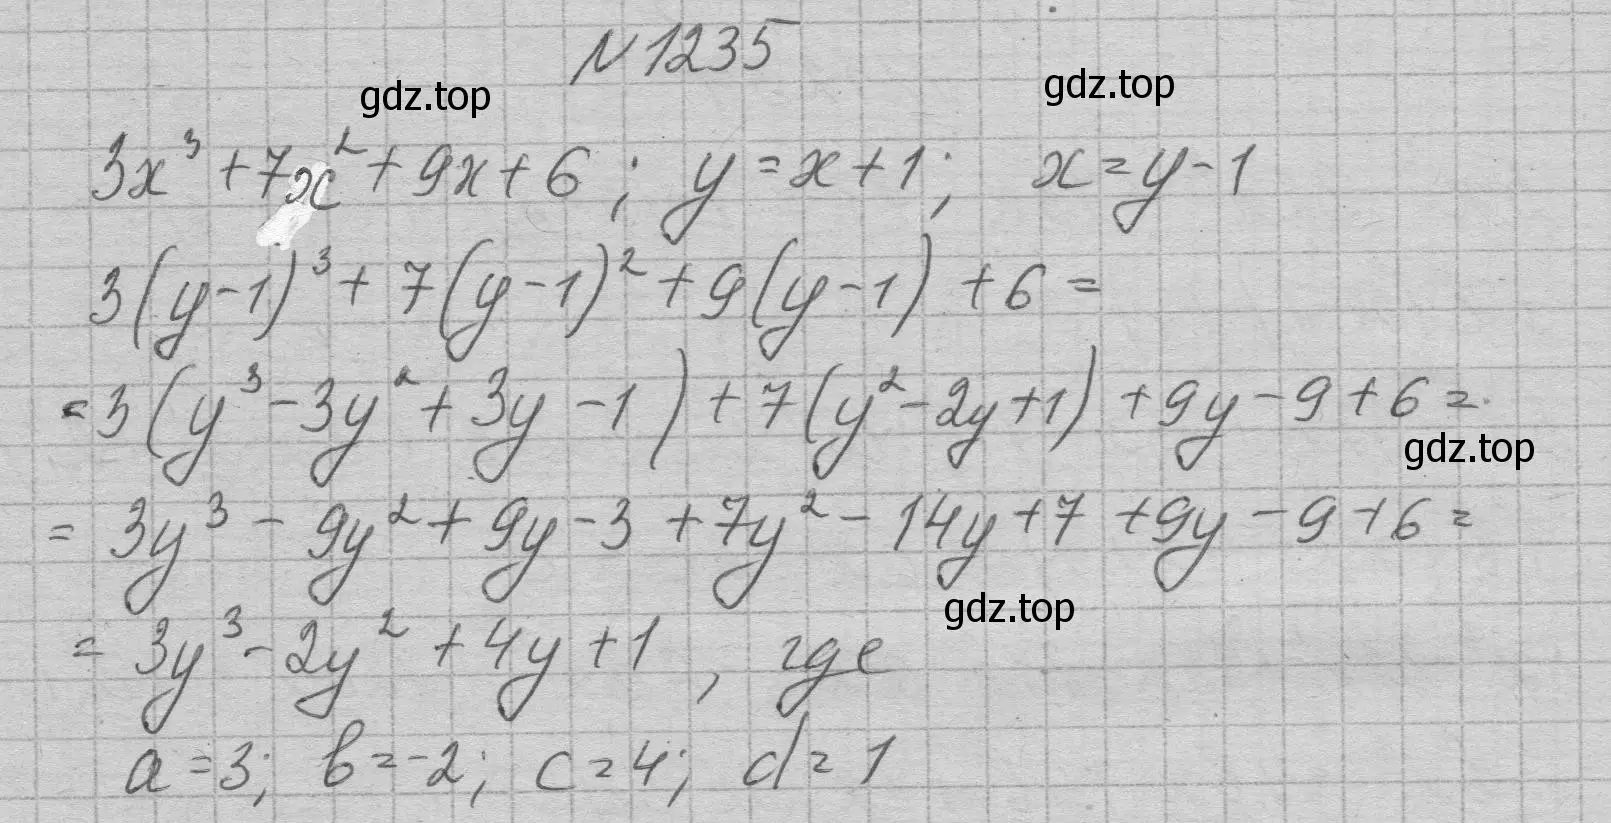 N1235
gdz.top
gdz.top
3x³ + 7x² + 9x + 6 ; y = x + 1 ; x = y - 1
3(y-1)³ + 7(y-1)² + 9(y-1) + 6 =
= 3(y³ - 3y² + 3y - 1) + 7(y² - 2y + 1) + 9y - 9 + 6 =
gdz.top
= 3y³ - 9y² + 9y - 3 + 7y² - 14y + 7 + 9y - 9 + 6 =
gdz.top
= 3y³ - 2y² + 4y + 1 , где
a = 3; b = -2; c = 4; d = 1